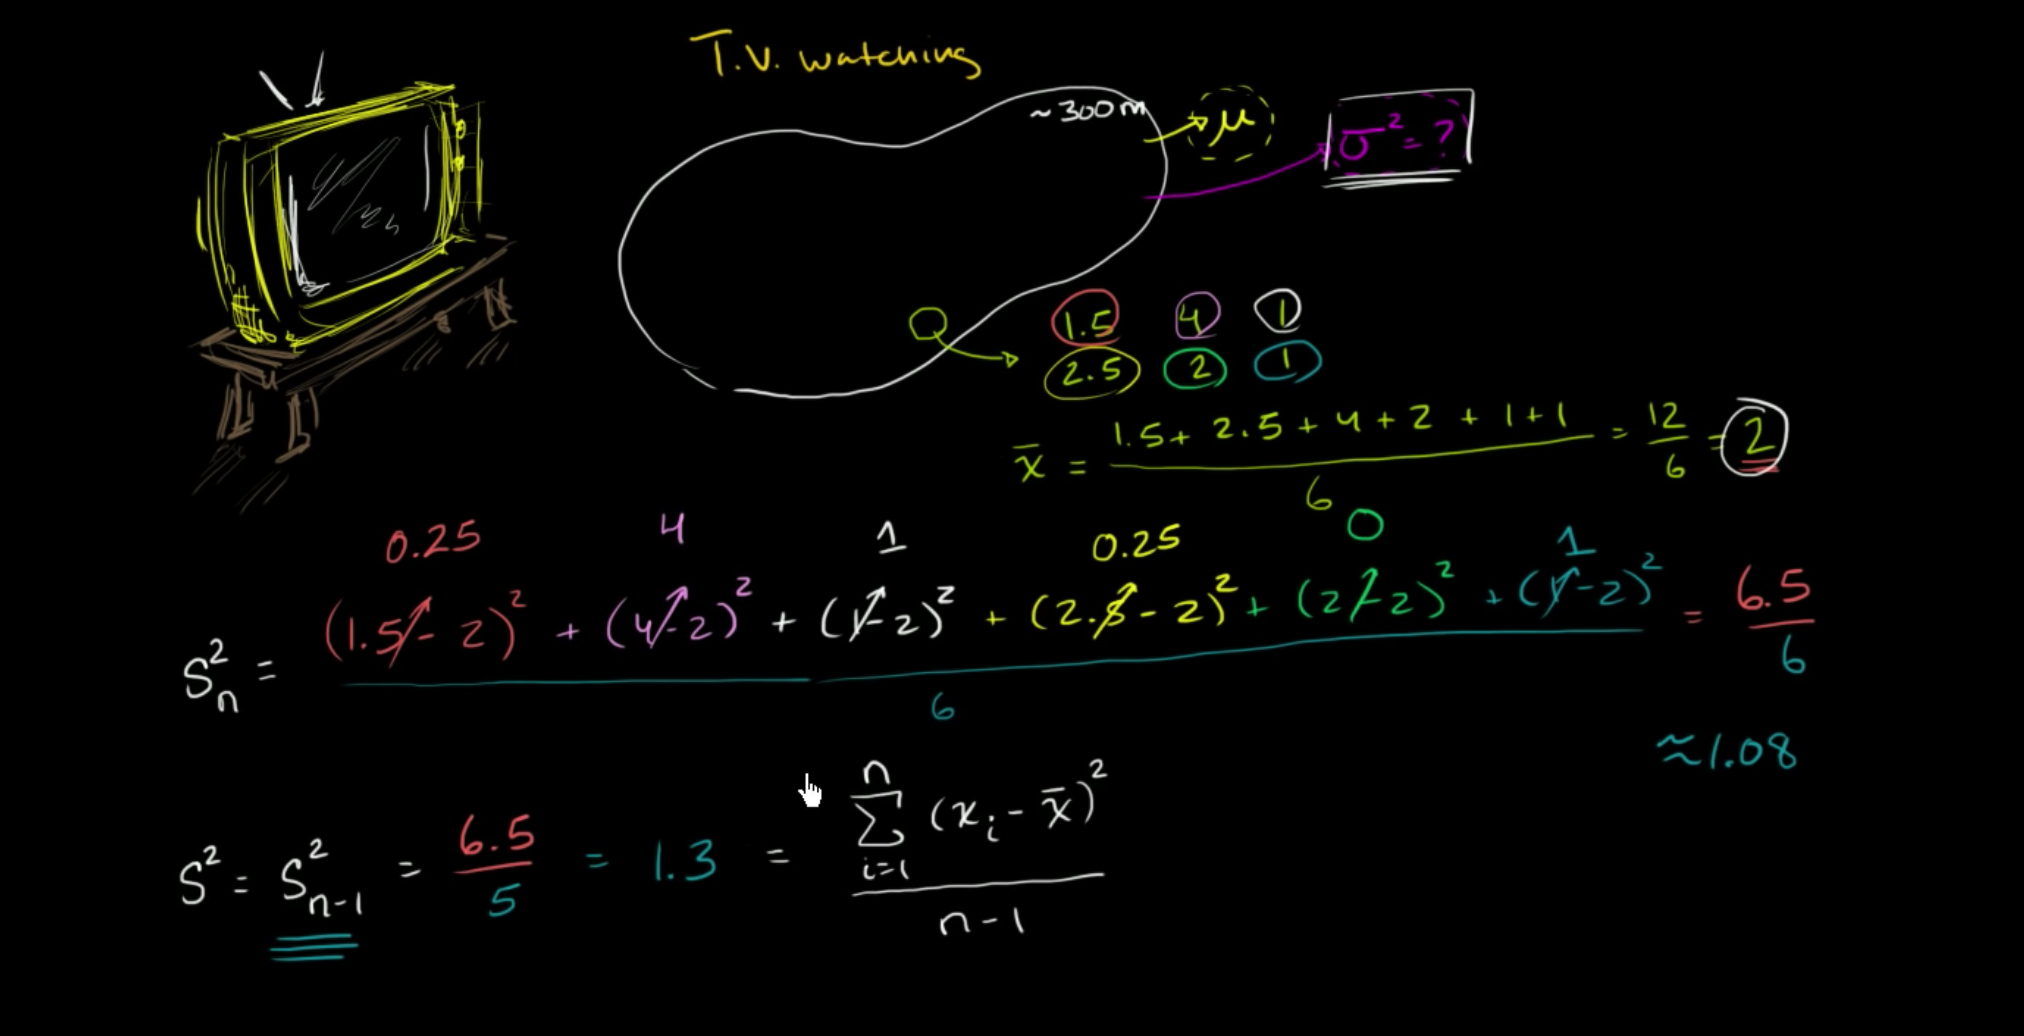 T.V. watching
~300m → μ
σ² = ?
1.5 4 1
2.5 2 1
x̄ = (1.5 + 2.5 + 4 + 2 + 1 + 1) / 6 = 12 / 6 = 2
0.25 4 1 0.25 0 1
Sₙ² = ((1.5 - 2)² + (4 - 2)² + (1 - 2)² + (2.5 - 2)² + (2 - 2)² + (1 - 2)²) / 6 = 6.5 / 6
≈ 1.08
S² = Sₙ₋₁² = 6.5 / 5 = 1.3 = ∑ᵢ₌₁ⁿ (xᵢ - x̄)² / (n - 1)